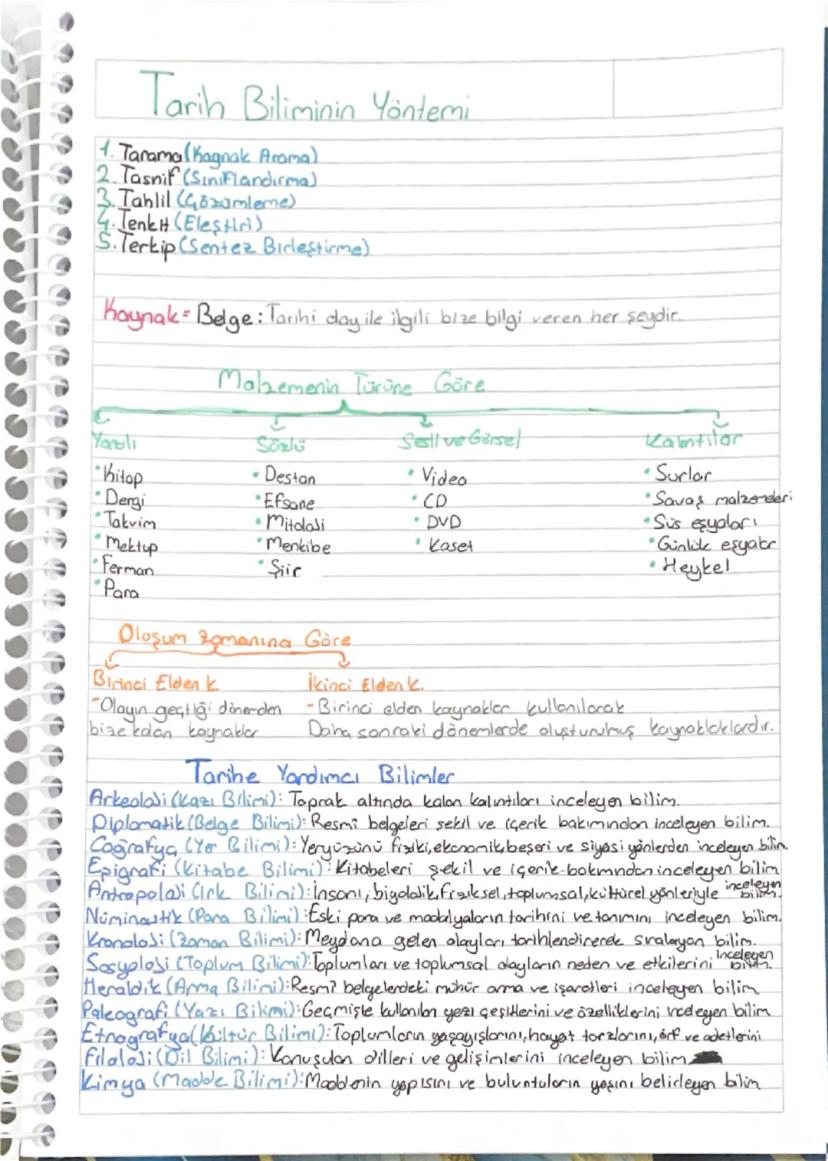 Tarih Biliminin Yöntemi
1. Tarama (Kaynak Arama)
2. Tasnif (Sınıflandırma)
3. Tahlil (Çözümleme)
4. Tenkit (Eleştiri)
5. Terkip (Sentez Birleştirme)
Kaynak = Belge : Tarihi olay ile ilgili bize bilgi veren her şeydir.
Malzemenin Türüne Göre
Yazılı Sözlü Sesli ve Görsel Kalıntılar
• Kitap • Destan • Video • Surlar
• Dergi • Efsane • CD • Savaş malzemeleri
• Takvim • Mitoloji • DVD • Süs eşyaları
• Mektup • Menkibe • Kaset • Günlük eşyalar
• Ferman • Şiir • Heykel
• Para
Oluşum Zamanına Göre
Birinci Elden K. İkinci Elden K.
- Olayın geçtiği dönemden - Birinci elden kaynaklar kullanılarak
bize kalan kaynaklar Daha sonraki dönemlerde oluşturulmuş kaynaklaklardır.
Tarihe Yardımcı Bilimler
Arkeoloji (Kazı Bilimi): Toprak altında kalan kalıntıları inceleyen bilim.
Diplomatik (Belge Bilimi): Resmî belgeleri şekil ve içerik bakımından inceleyen bilim.
Coğrafya (Yer Bilimi): Yeryüzünü fiziki, ekonomik, beşeri ve siyasi yönlerden inceleyen bilim.
Epigrafi (Kitabe Bilimi): Kitabeleri şekil ve içerik bakımından inceleyen bilim
Antropoloji (Irk Bilimi): İnsanı, biyolojik, fiziksel, toplumsal, kültürel yönleriyle inceleyen bilim.
Nümizmatik (Para Bilimi): Eski para ve madalyaların tarihini ve tanımını inceleyen bilim.
Kronoloji (Zaman Bilimi): Meydana gelen olayları tarihlendirerek sıralayan bilim.
Sosyoloji (Toplum Bilimi): Toplumları ve toplumsal olayların neden ve etkilerini inceleyen bilim.
Heraldik (Arma Bilimi): Resmî belgelerdeki mühür arma ve işaretleri inceleyen bilim
Paleografi (Yazı Bilimi): Geçmişte kullanılan yazı çeşitlerini ve özelliklerini inceleyen bilim
Etnografya (Kültür Bilimi): Toplumların yaşayışlarını, hayat tarzlarını, örf ve adetlerini
Filoloji (Dil Bilimi): Konuşulan dilleri ve gelişimlerini inceleyen bilim
Kimya (Madde Bilimi): Maddenin yapısını ve buluntuların yaşını belirleyen bilim